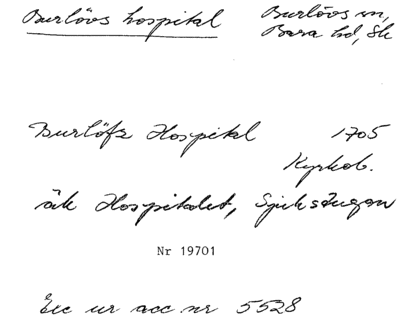 Burlövs hospital
Burlövs sn,
Bara hd, Sk
Burlöfz Hospital 1705
Kyrkob.
äk Hospitalet, Sjukstugan
Nr 19701
Exc ur acc nr 5528